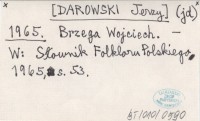 [DAROWSKI Jerzy] (jd)
1965. Brzega Wojciech. –
W: Słownik Folkloru Polskiego,
1965, s. 53.